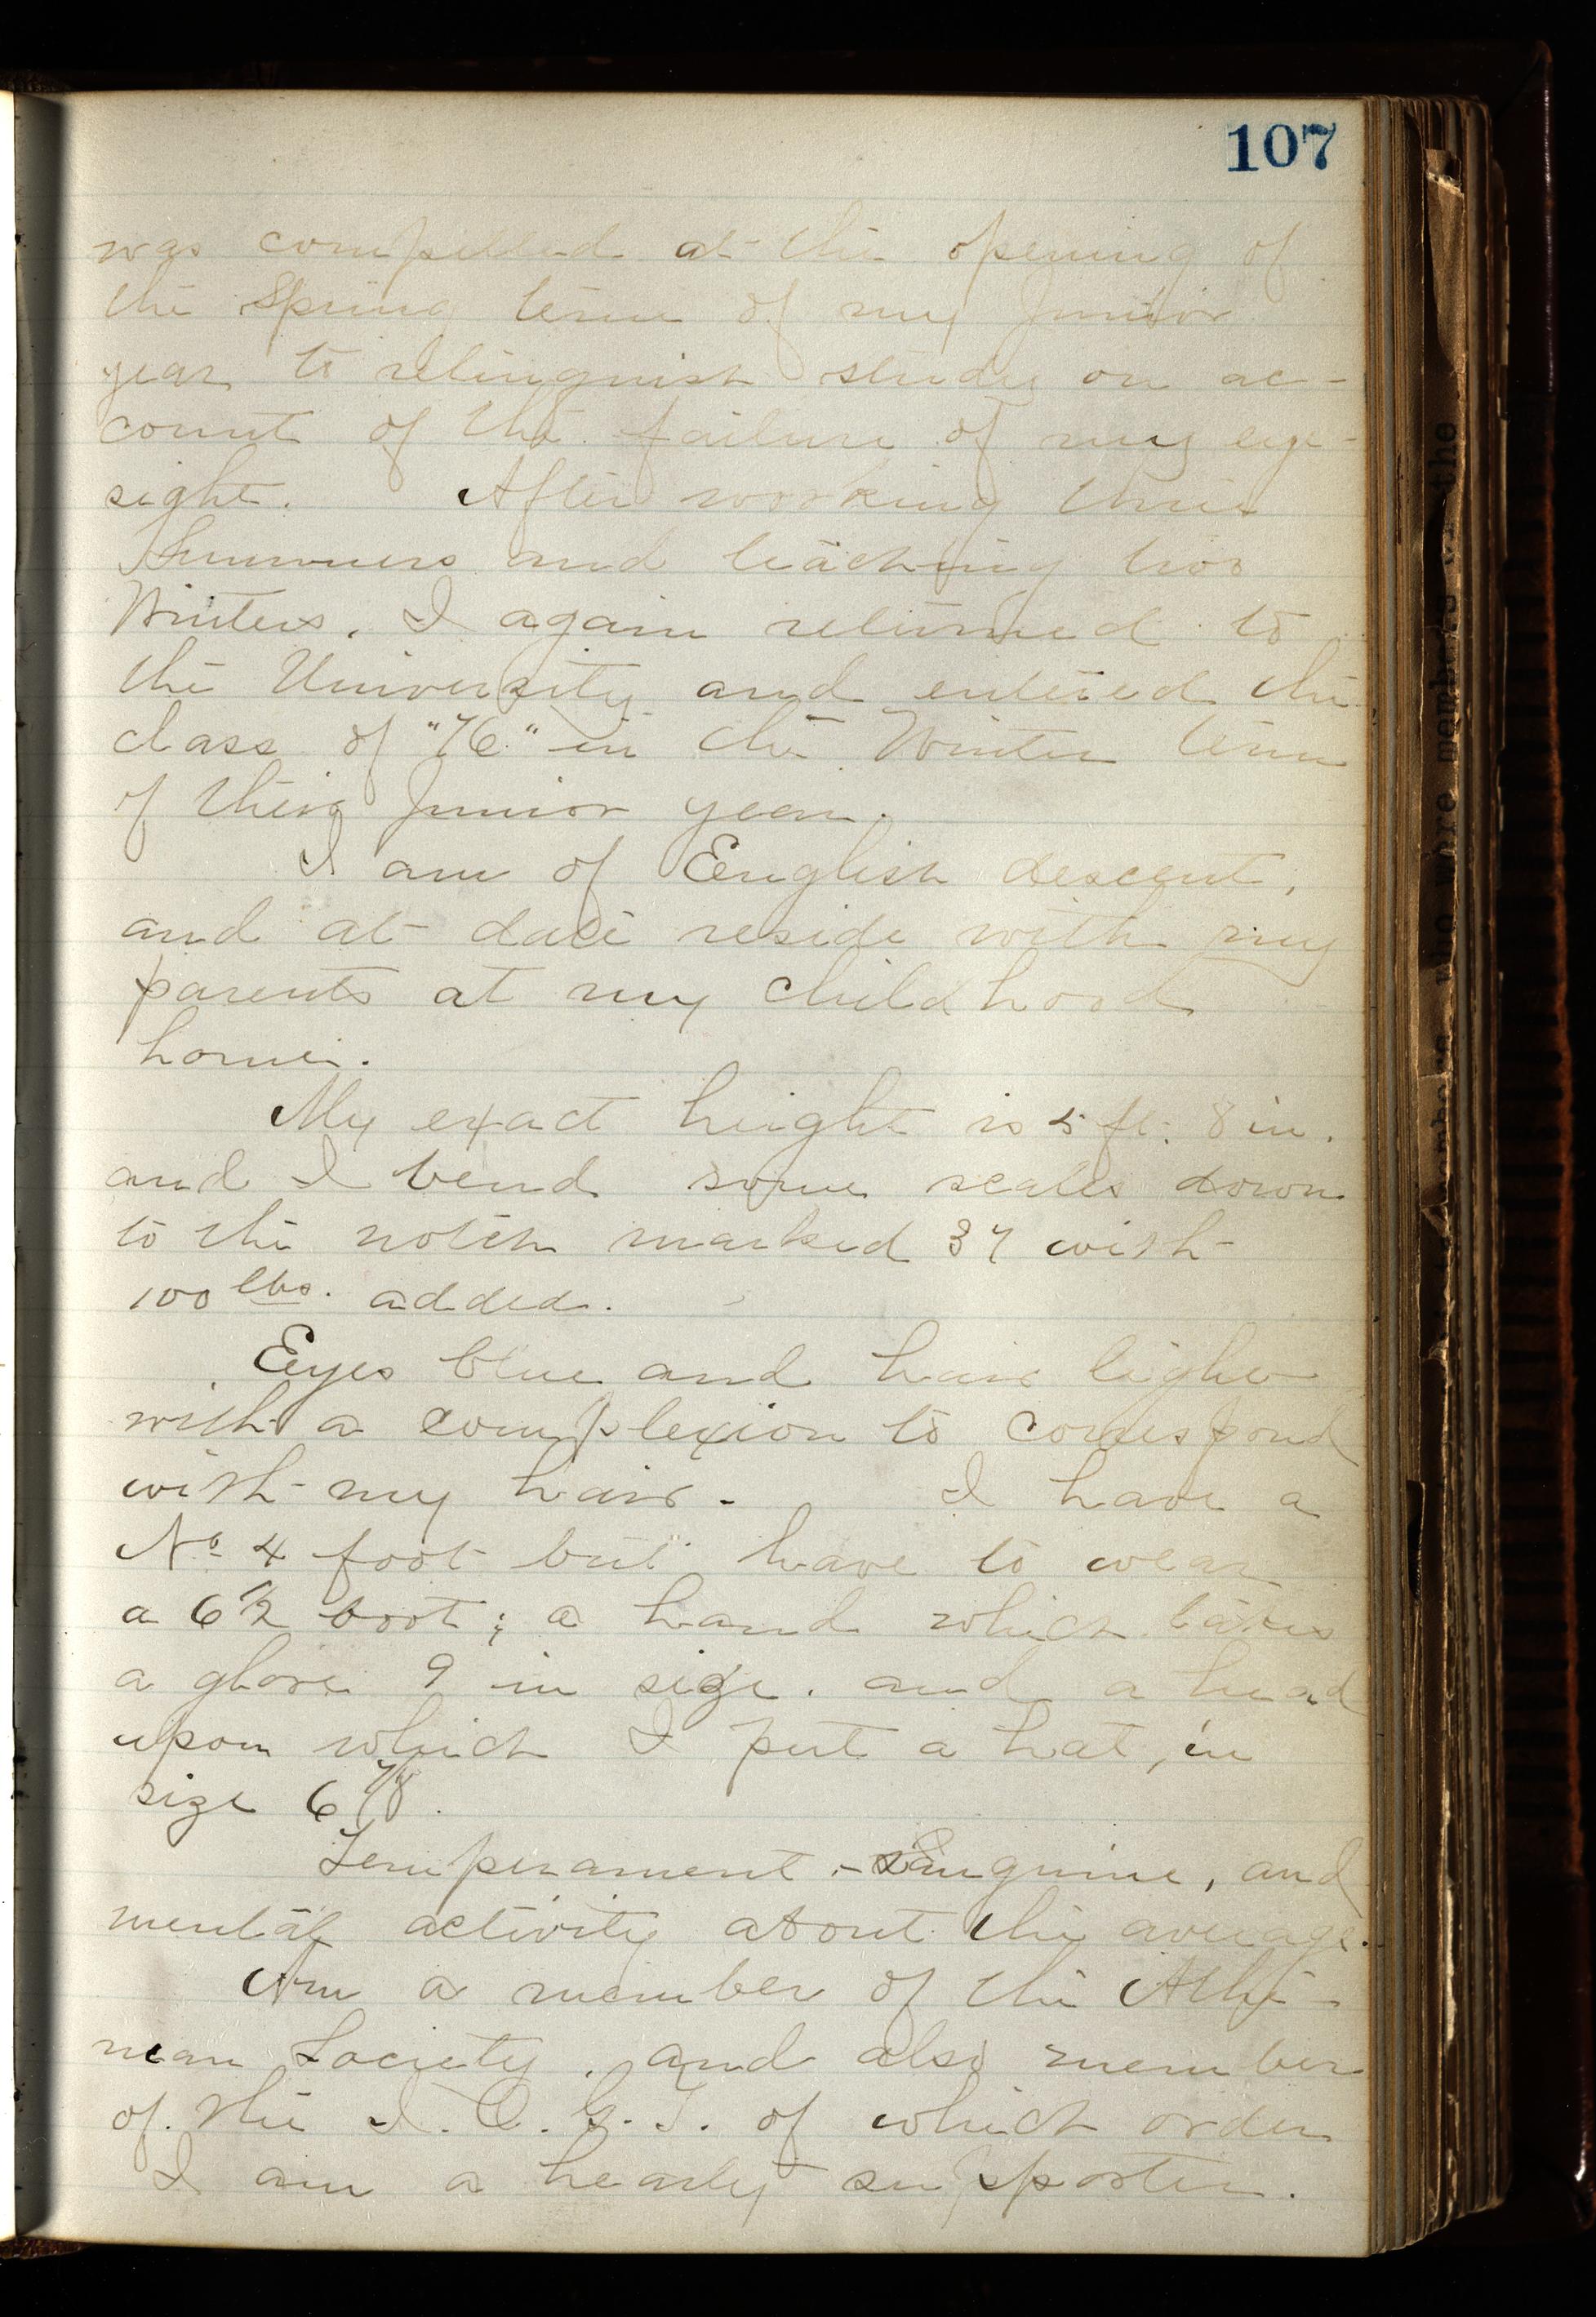 107
was compelled at the opening of
the Spring term of my Junior
year to relinquish study on ac-
count of the failure of my eye-
sight. After working three
Summers and teaching two
Winters, I again returned to
the University and entered the
class of "76" in the Winter term
of their Junior year.
I am of English descent,
and at date reside with my
parents at my childhood
home.
My exact height is 5 ft. 8 in.
and I bend some scales down
to the notch marked 37 with
100 lbs. added.
Eyes blue and hair light
with a complexion to correspond
with my hair. I have a
No 4 foot but have to wear
a 6 1/2 boot; a hand which takes
a glove 9 in size. and a head
upon which I put a hat, in
size 6 7/8.
Temperament - Sanguine, and
mental activity about the average.
Am a member of the Athe-
nean Society, and also member
of the I. O. G. T. of which order
I am a hearty supporter.
who were members of the